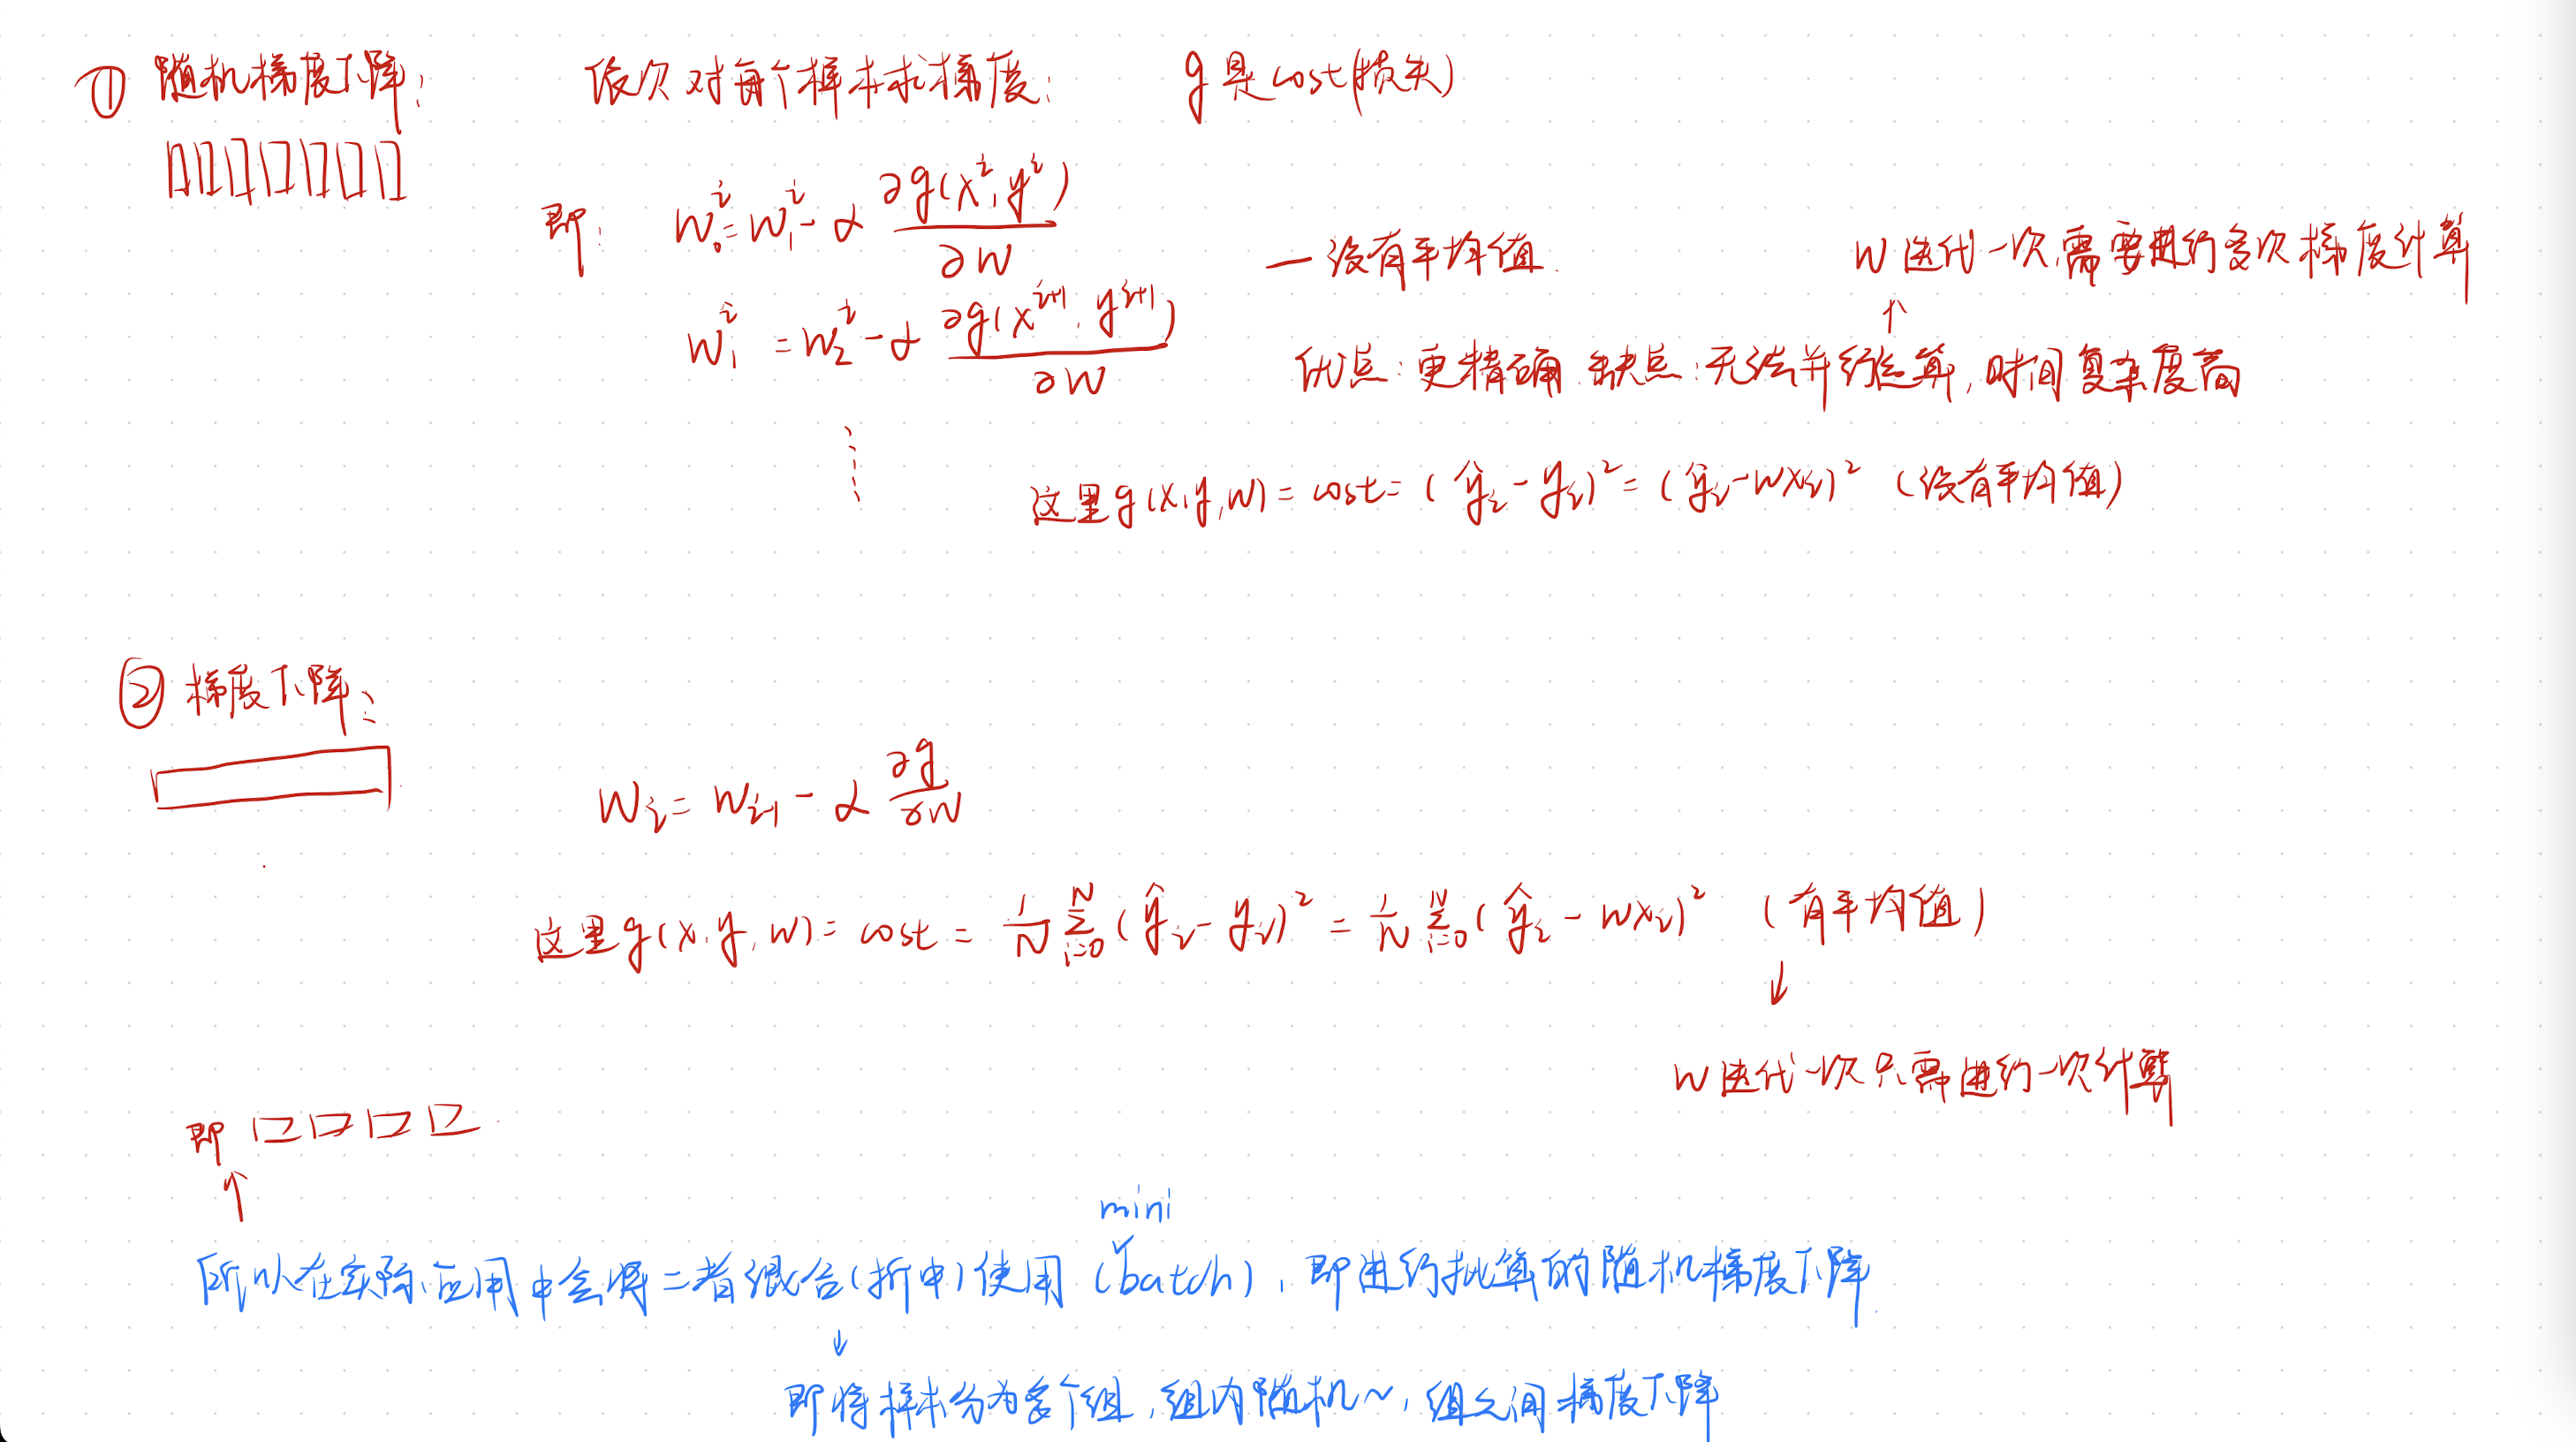 ① 随机梯度下降: 依次对每个样本求梯度: g是cost(损失)
即: w₀ⁱ = w₁ⁱ - α ∂g(xⁱ, yⁱ)/∂w
— 没有平均值. w迭代一次需要进行多次梯度计算
↑
w₁ⁱ = w₂ⁱ - α ∂g(xⁱ⁺¹, yⁱ⁺¹)/∂w
优点: 更精确 缺点: 无法并行运算, 时间复杂度高
这里g(x, y, w) = cost = (ŷᵢ - yᵢ)² = (ŷᵢ - wxᵢ)² (没有平均值)
② 梯度下降:
wᵢ = wᵢ₋₁ - α ∂g/∂w
这里g(x, y, w) = cost = 1/N Σᵢ₌₀ᴺ (ŷᵢ - yᵢ)² = 1/N Σᵢ₌₀ᴺ (ŷᵢ - wxᵢ)² (有平均值)
↓
w迭代一次只需进行一次计算
即 口口口口
↑
mini
所以在实际应用中会将二者混合(折中)使用 (batch), 即进行批算的随机梯度下降.
↓
即将样本分为多个组, 组内随机~, 组之间梯度下降